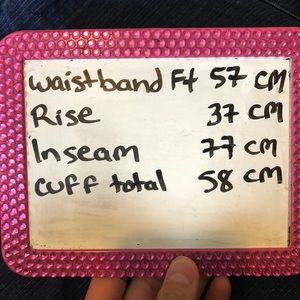 waistband Ft 57 cm
Rise 37 cm
Inseam 77 cm
cuff total 58 cm